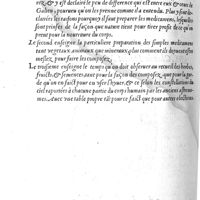 rez, & y est declaré le peu de difference qui est entre eux & le
Galien, pourueu qu'on les prenne comme il faut. Plus y sont de-
clarées les raisons pourquoy il faut preparer les medicamens, lesquelles
sont prinses de la façon que nature tient pour tirer profit de ce qu'on
prent pour la nourriture du corps.
Le second enseigne la particuliere preparation des simples medicamens
tant vegetaux animaux que mineraux, plus comment ils doyuent estre
meslez, pour faire les composez.
Le troisiesme enseigne le temps qu'on doit obseruer au recueil des herbes,
fruicts, & semences tant pour la façon des composez, que pour la garde
qu'on en faict pour en vser l'hyuer, & ce selon les constellations du
ciel rapportées à chacune partie du corps humain par les anciens astrono-
mes. Auec vne table propre à ce faict que pour autres